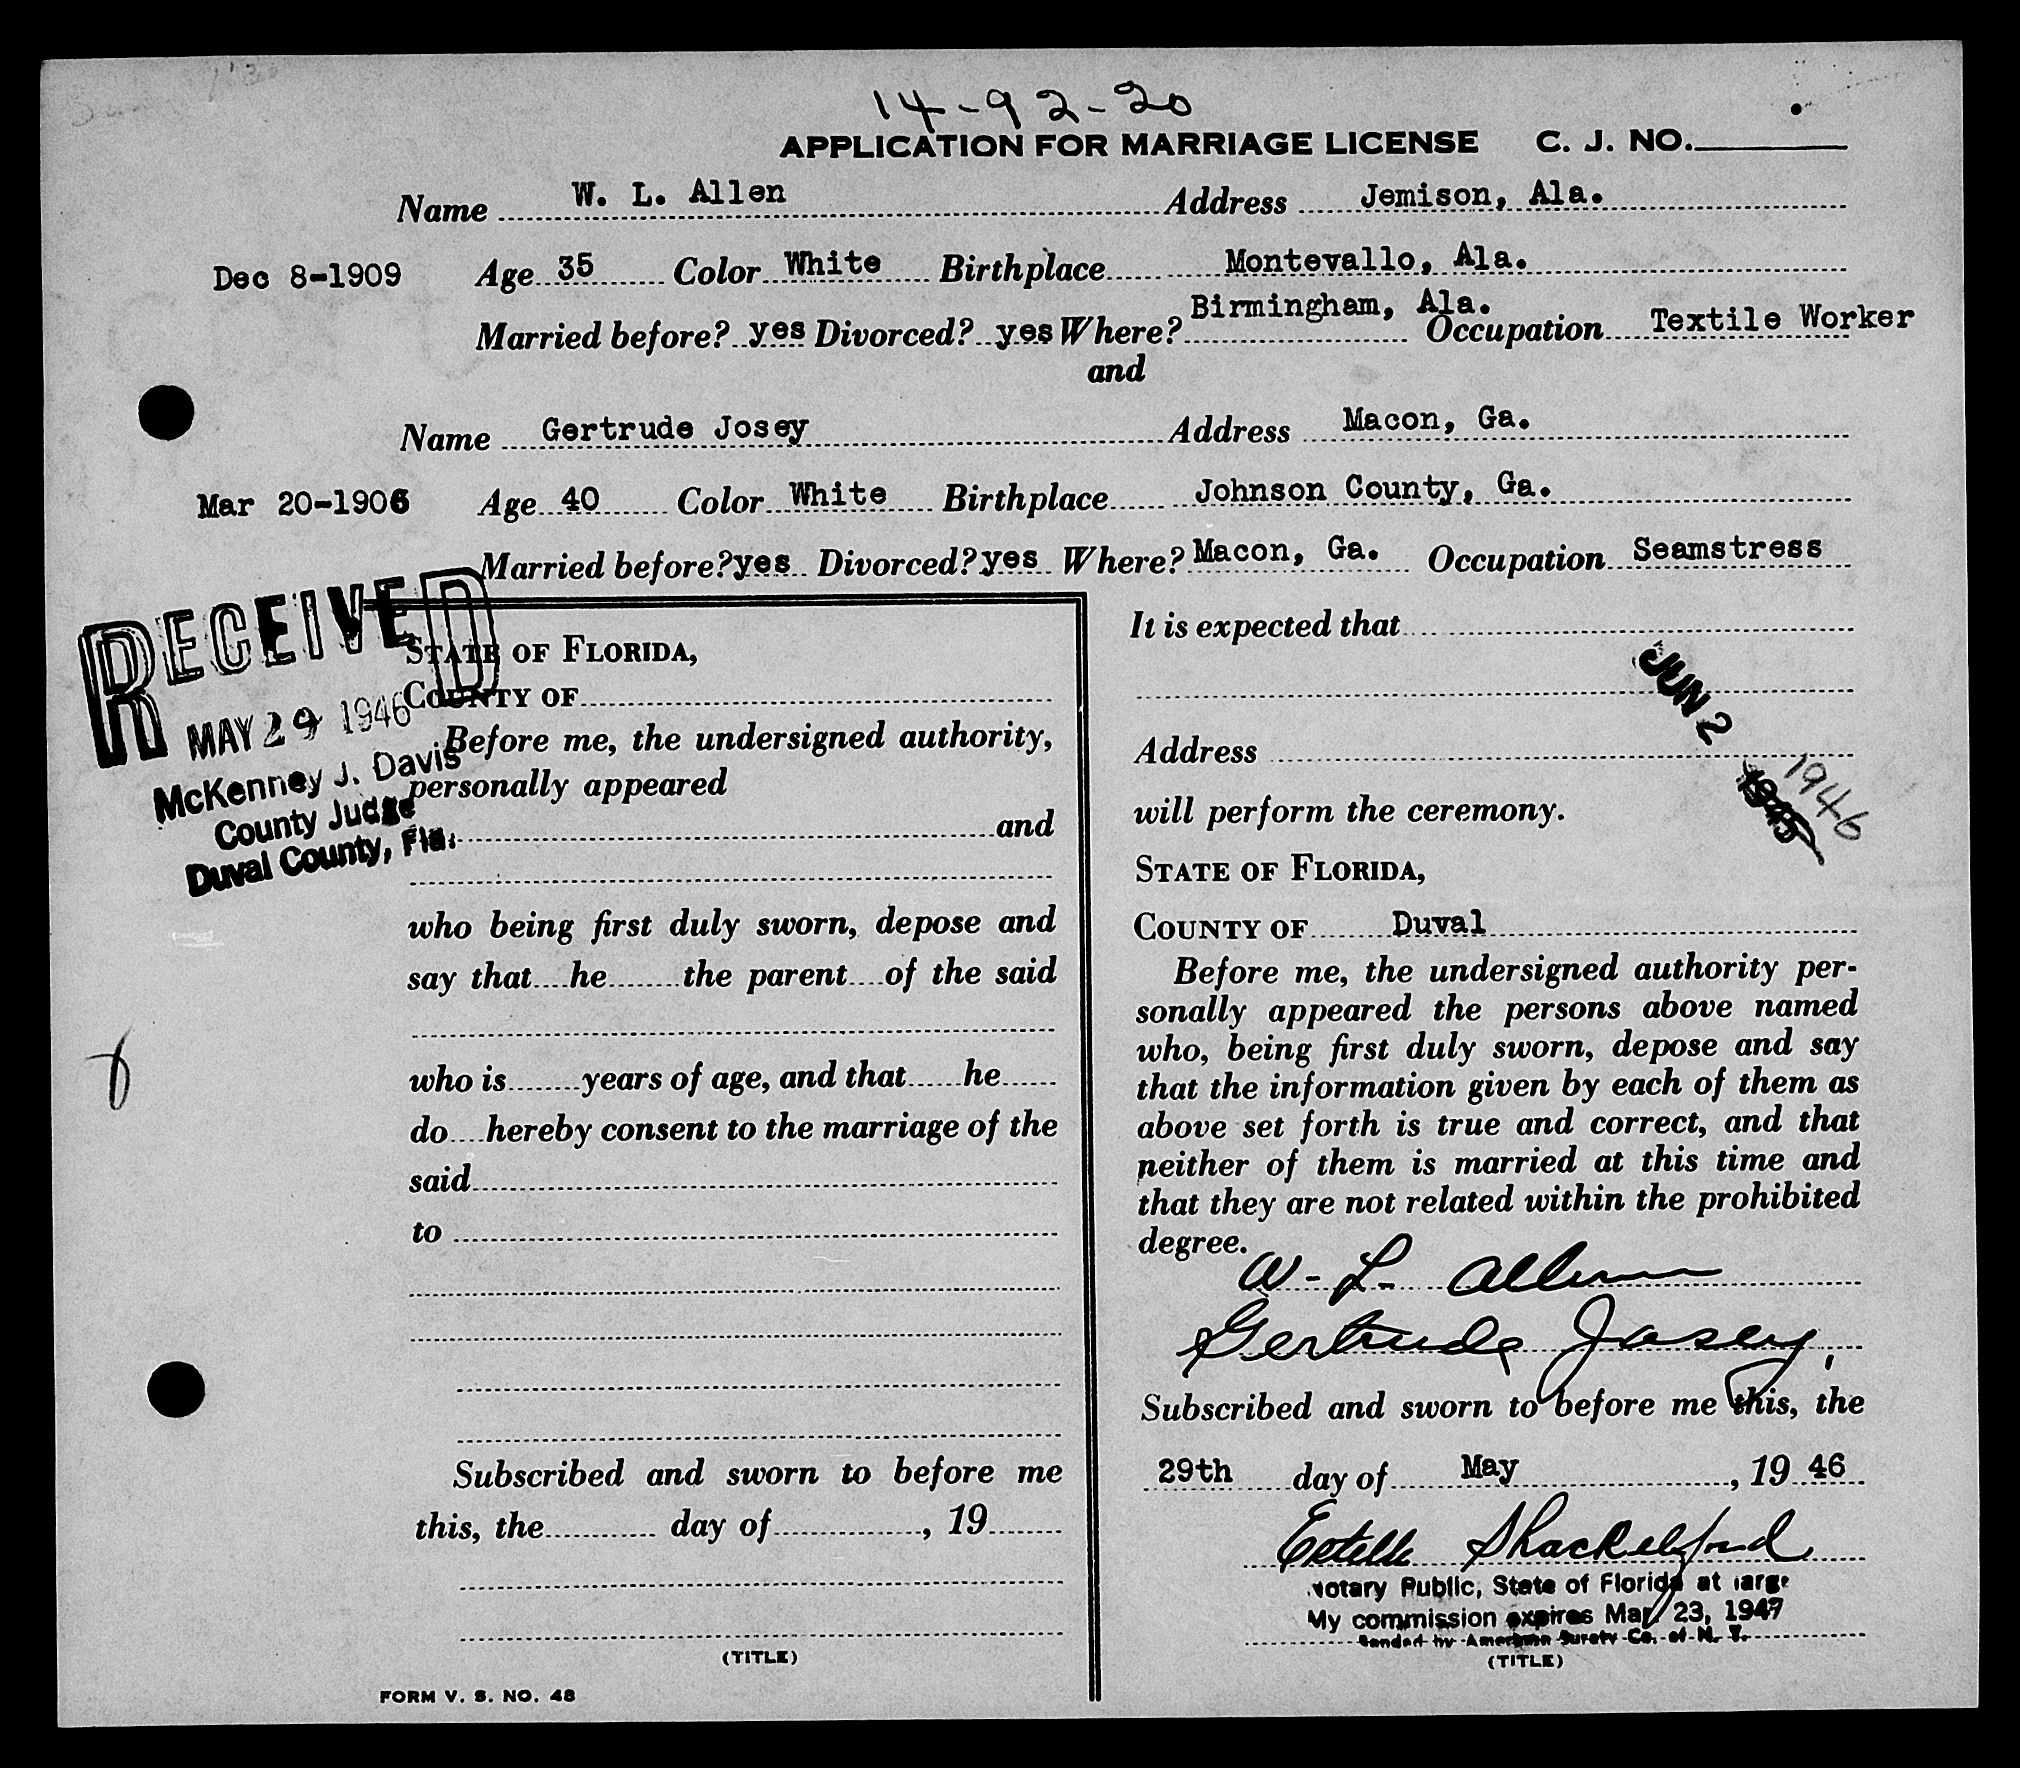 14-92-20
APPLICATION FOR MARRIAGE LICENSE C. J. NO.
Name W. L. Allen Address Jemison, Ala.
Dec 8-1909 Age 35 Color White Birthplace Montevallo, Ala.
Married before? yes Divorced? yes Where? Birmingham, Ala. Occupation Textile Worker
and
Name Gertrude Josey Address Macon, Ga.
Mar 20-1906 Age 40 Color White Birthplace Johnson County, Ga.
Married before? yes Divorced? yes Where? Macon, Ga. Occupation Seamstress
RECEIVED
MAY 29 1946
McKenney J. Davis
County Judge
Duval County, Fla.
STATE OF FLORIDA,
COUNTY OF
Before me, the undersigned authority,
personally appeared
and
who being first duly sworn, depose and
say that he the parent of the said
who is years of age, and that he
do hereby consent to the marriage of the
said
to
Subscribed and sworn to before me
this, the day of , 19
(TITLE)
FORM V. S. NO. 48
It is expected that
JUN 2
1945 1946
Address
will perform the ceremony.
STATE OF FLORIDA,
COUNTY OF Duval
Before me, the undersigned authority per-
sonally appeared the persons above named
who, being first duly sworn, depose and say
that the information given by each of them as
above set forth is true and correct, and that
neither of them is married at this time and
that they are not related within the prohibited
degree.
W. L. Allen
Gertrude Josey
Subscribed and sworn to before me this, the
29th day of May , 19 46
Estelle Shackelford
Notary Public, State of Florida at large
My commission expires May 23, 1947
Bonded by American Surety Co. of N. Y.
(TITLE)